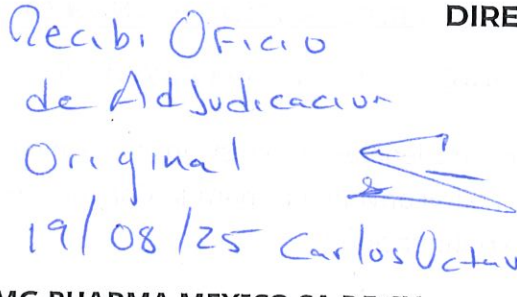 DIRE
Recibi Oficio
de Adjudicacion
Original
19/08/25 Carlos Octav
MG PHARMA MEXICO SA DE CV